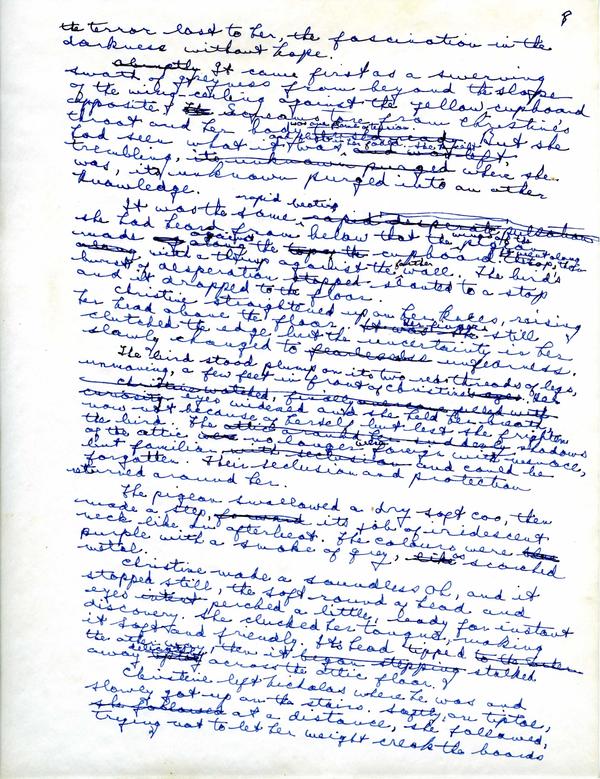 8
the terror lost to her, the fascination in the
darkness without hope.
abruptly It came first as a swerving
swath of greyness from beyond the slope
of the wing ceiling against the yellow cupboard
opposite. Screams tore from Christine's
throat and her body But she
had seen what it was and was left
trembling, its unknown purged where she
was, its unknown purged into an other
knowledge.
rapid beating
It was the same rapid desperate pulsation
she had heard from below that the pigeon
made along the top of the cupboard
with a thump against the wall. The bird's
burst of desperation stopped slanted to a stop
and it dropped to the floor.
Christine straightened up on her knees, raising
her head above the floor. It was she still
clutched the edge but the uncertainty in her
slowly changed to fearlessness fearness.
The bird stood plump on its two red threads of legs,
unmoving, a few feet in front of Christine's eyes. Her
Christine watched, finally
curiosity eyes widened and she held her breath
now not because of herself but lest she frighten
the bird. The shadows
of the attic were no longer foreign with menace,
but familiar with seclusion and could be
forgotten. Their seclusion and protection
returned around her.
The pigeon swallowed a dry soft coo, then
made a step, forward its job of iridescent
neck like an afterbeat. The colours were blue
purple with a smoke of grey, like scorched
metal.
Christine made a soundless Oh, and it
stopped still, the soft round of head and
eyes intent perched a little, ready for instant
discovery. She clucked her tongue, making
it soft and friendly. Its head tipped to the
the other, then it began stepping stalked
away delicately across the attic floor.
Christine left Nicholas where he was and
slowly got up on the stairs. Softly, on tiptoe,
she followed at a distance, she followed,
trying not to let her weight creak the boards